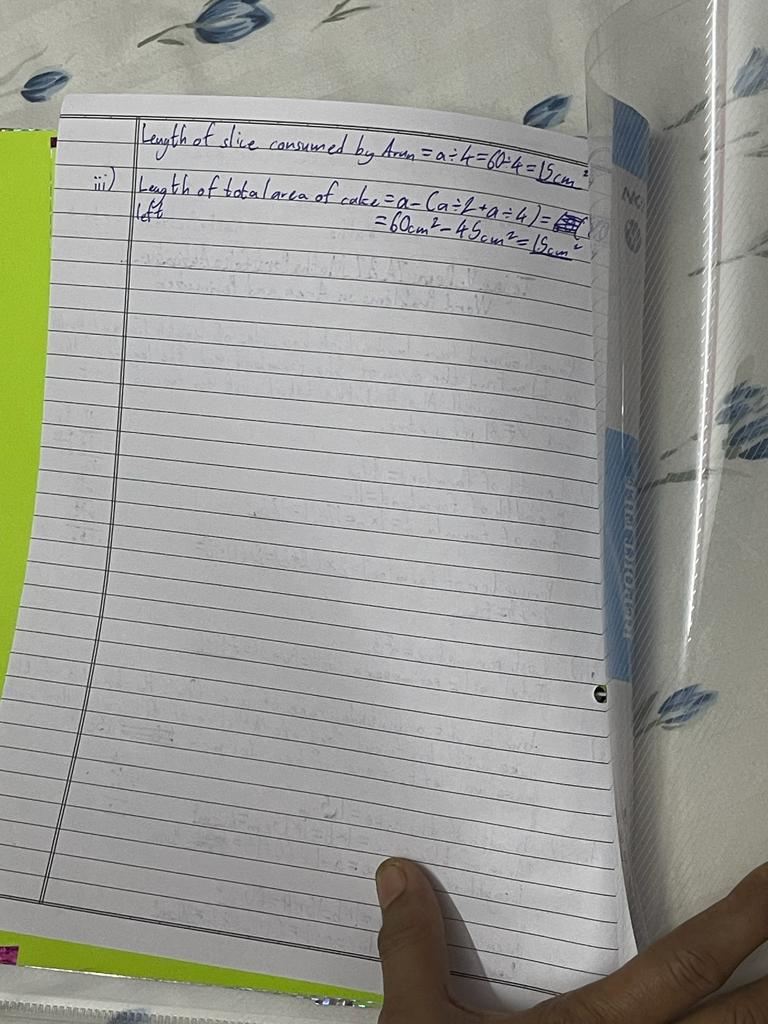 Length of slice consumed by Arun = a÷4=60÷4=15cm²
iii) Length of total area of cake = a-(a÷2+a÷4)=
left =60cm²-45cm²=15cm²
REPORT FILE